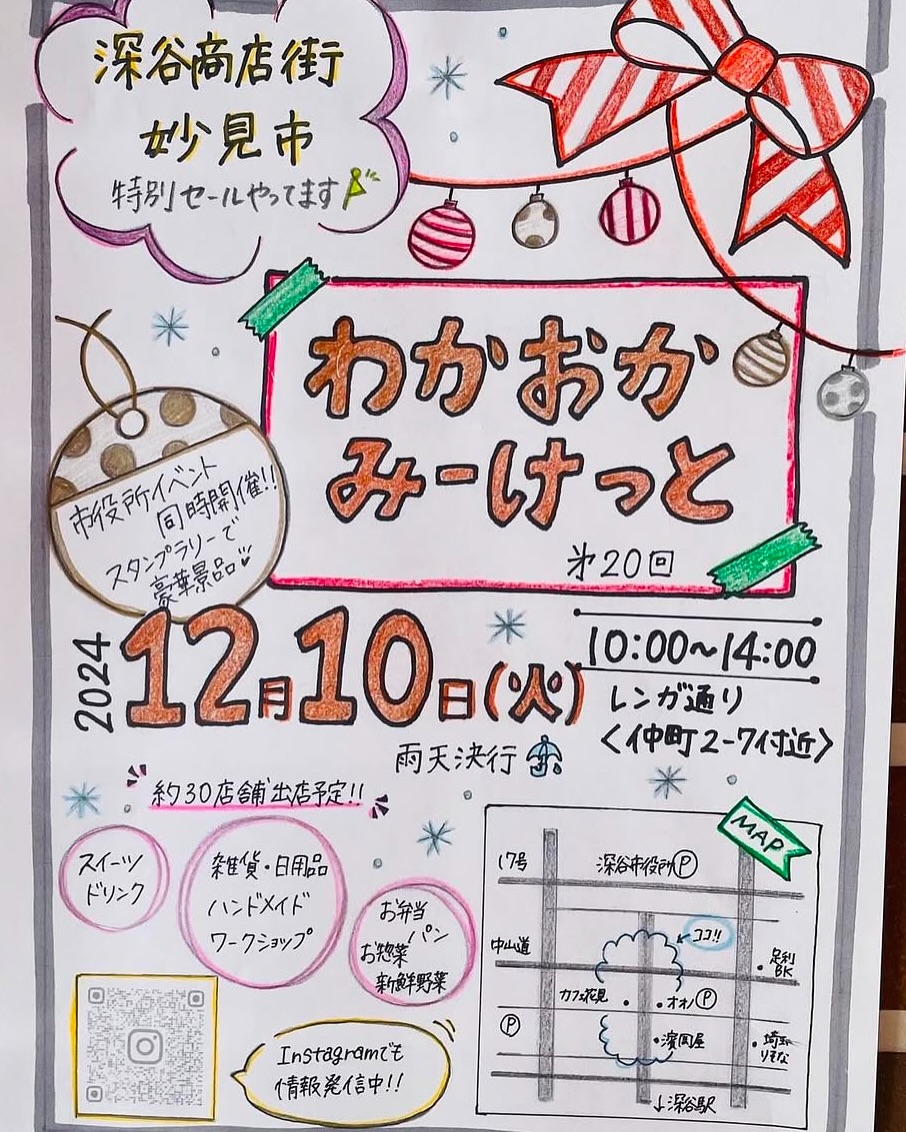 深谷商店街
妙見市
特別セールやってます
わかおか
みーけっと
第20回
市役所イベント
同時開催!!
スタンプラリーで
豪華景品
2024
12月10日(火)
10:00~14:00
レンガ通り
<仲町2-7付近>
雨天決行
約30店舗出店予定!!
スイーツ
ドリンク
雑貨・日用品
ハンドメイド
ワークショップ
お弁当
パン
お惣菜
新鮮野菜
Instagramでも
情報発信中!!
MAP
17号
深谷市役所Ⓟ
ココ!!
中山道
足利
BK
カフェ花見
オオノⓅ
Ⓟ
濱岡屋
埼玉
りそな
↓深谷駅